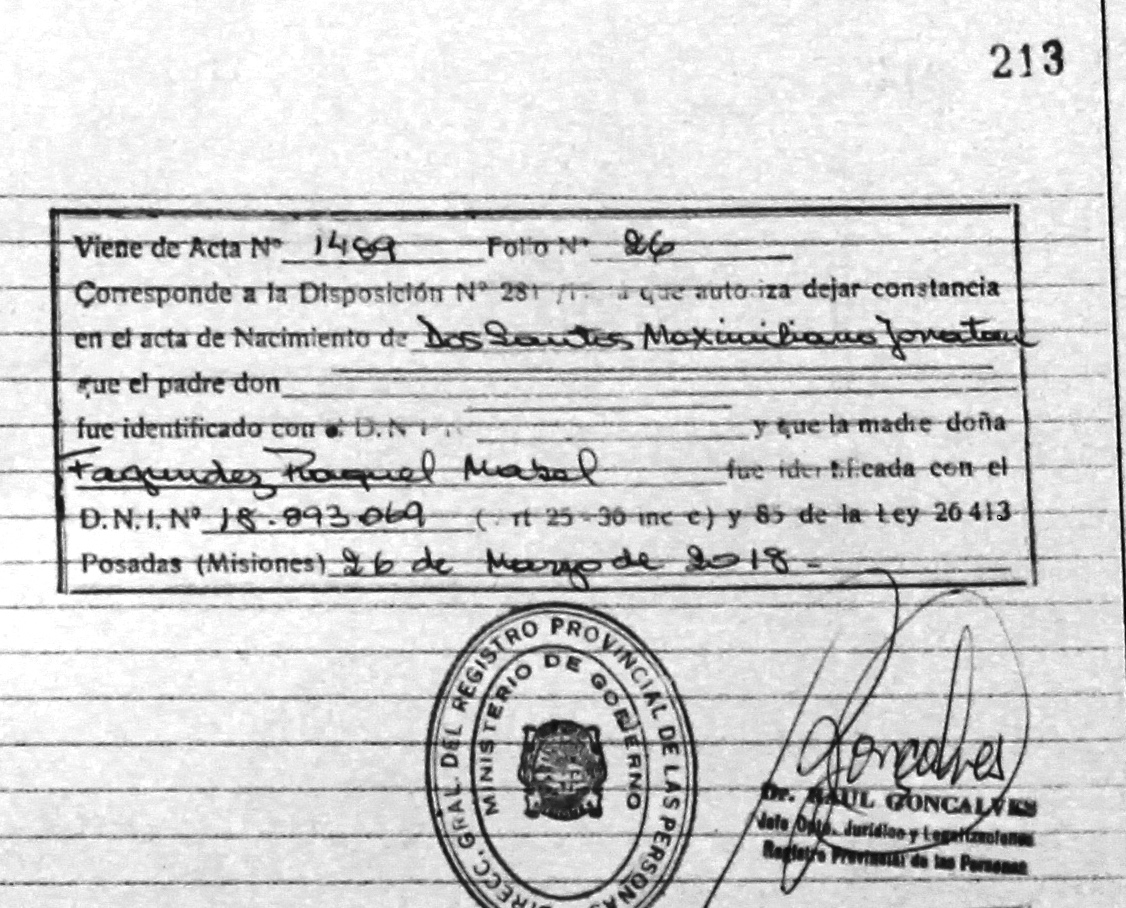 213
Viene de Acta Nº 1489 Folio Nº 26
Corresponde a la Disposición Nº 281 que autoriza dejar constancia
en el acta de Nacimiento de Dos Santos Maximiliano Jonatan
que el padre don
fue identificado con el D.N.I. y que la madre doña
Fagundez Raquel Mabel fue identificada con el
D.N.I. Nº 18.893.069 ( rt 25 - 36 inc c) y 85 de la Ley 26 413
Posadas (Misiones) 26 de Marzo de 2018.-
DIRECC. GRAL. DEL REGISTRO PROVINCIAL DE LAS PERSONAS
MINISTERIO DE GOBIERNO
Goncalves
Dr. RAUL GONCALVES
Jefe Dpto. Jurídico y Legalizaciones
Registro Provincial de las Personas